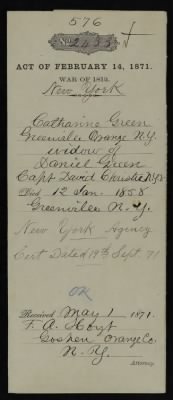 576
No. 2455
ACT OF FEBRUARY 14, 1871.
WAR OF 1812.
New York
Catharine Green
Greenville Orange N.Y.
widow of
Daniel Green
Capt David Christie N.Y.
Died 12 Jan. 1858
Greenville N.Y.
New York Agency
Cert Dated 19th Sept. 71
OK
Received May 1, 1871.
F. A. Hoyt
Goshen Orange Co.
N. Y.
Attorney.